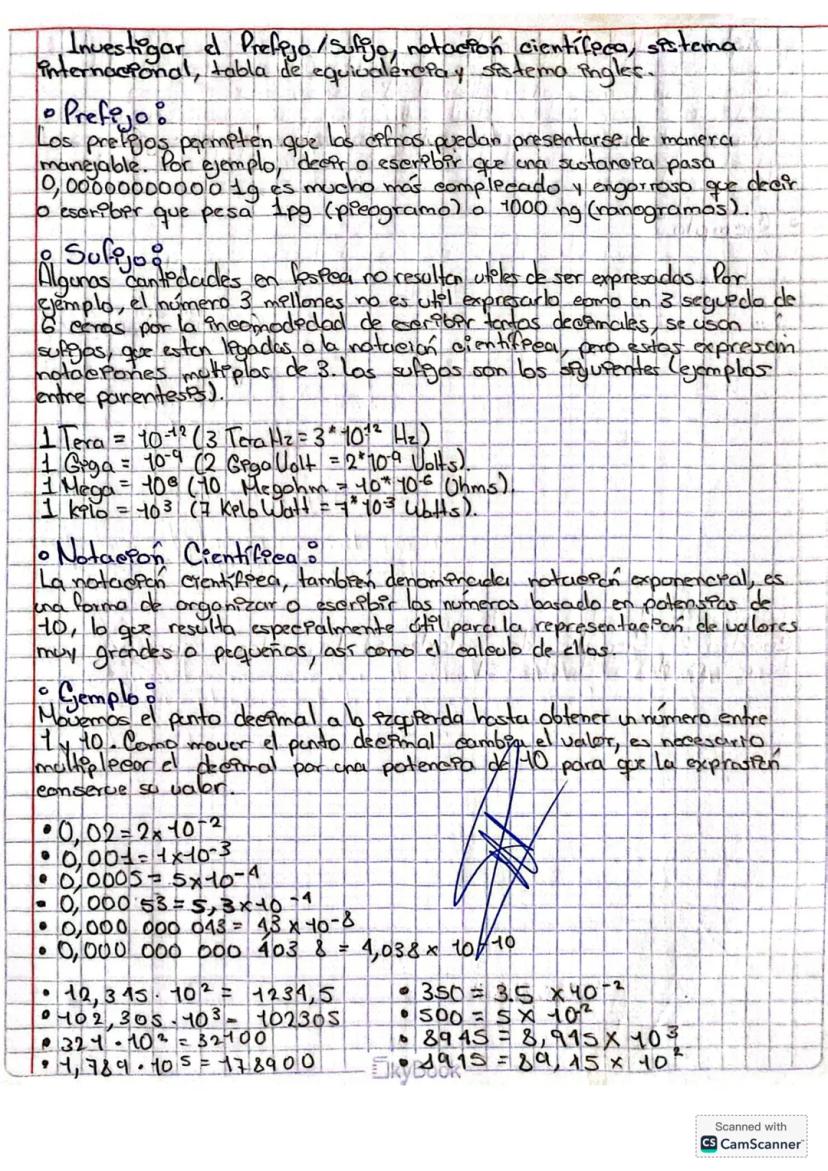 Investigar el Prefijo/Sufijo, notación científica, sistema
internacional, tabla de equivalencia y sistema ingles.
• Prefijo:
Los prefijos permiten que las cifras puedan presentarse de manera
manejable. Por ejemplo, decir o escribir que una sustancia pasa
0,00000000000 1g es mucho más complicado y engorroso que decir
o escribir que pesa 1pg (picogramo) o 1000 ng (nanogramos).
• Sufijo:
Algunas cantidades en fisica no resultan utiles de ser expresadas. Por
ejemplo, el número 3 millones no es util expresarlo como un 3 seguido de
6 ceros por la incomodidad de escribir tantos decimales, se usan
sufijos, que estan ligadas a la notación científica, pero estas expresan
notaciones multiplos de 3. Los sufijos son los siguientes (ejemplos
entre parentesis).
1 Tera = 10-12 (3 Tera Hz = 3*1012 Hz)
1 Giga = 10-9 (2 Giga Volt = 2*10-9 Volts).
1 Mega = 106 (10 Megohm = 10*10-6 Ohms).
1 kilo = 103 (7 Kilo Watt = 7*10-3 Watts).
• Notación Científica:
La notación científica, también denominada notación exponencial, es
una forma de organizar o escribir los números basado en potensias de
10, lo que resulta especialmente útil para la representación de valores
muy grandes o pequeños, así como el calculo de ellos.
• Ejemplo:
Movemos el punto decimal a la izquierda hasta obtener un número entre
1 y 10. Como mover el punto decimal cambia el valor, es necesario
multiplicar el decimal por una potencia de 10 para que la
conserve su valor.
• 0,02 = 2x10-2
• 0,001 = 1x10-3
• 0,0005 = 5x10-4
• 0,000 53 = 5,3x10-4
• 0,000 000 043 = 4,3 x 10-8
• 0,000 000 000 403 8 = 4,038 x 10-10
• 12,345 . 102 = 1234,5
• 102,305 . 103 = 102305
• 321 . 102 = 32100
• 1,789 . 105 = 178900
• 350 = 3.5 x 10-2
• 500 = 5 x 102
• 8945 = 8,945 x 103
• = 89,45 x 102
SkyBook
Scanned with
CS CamScanner